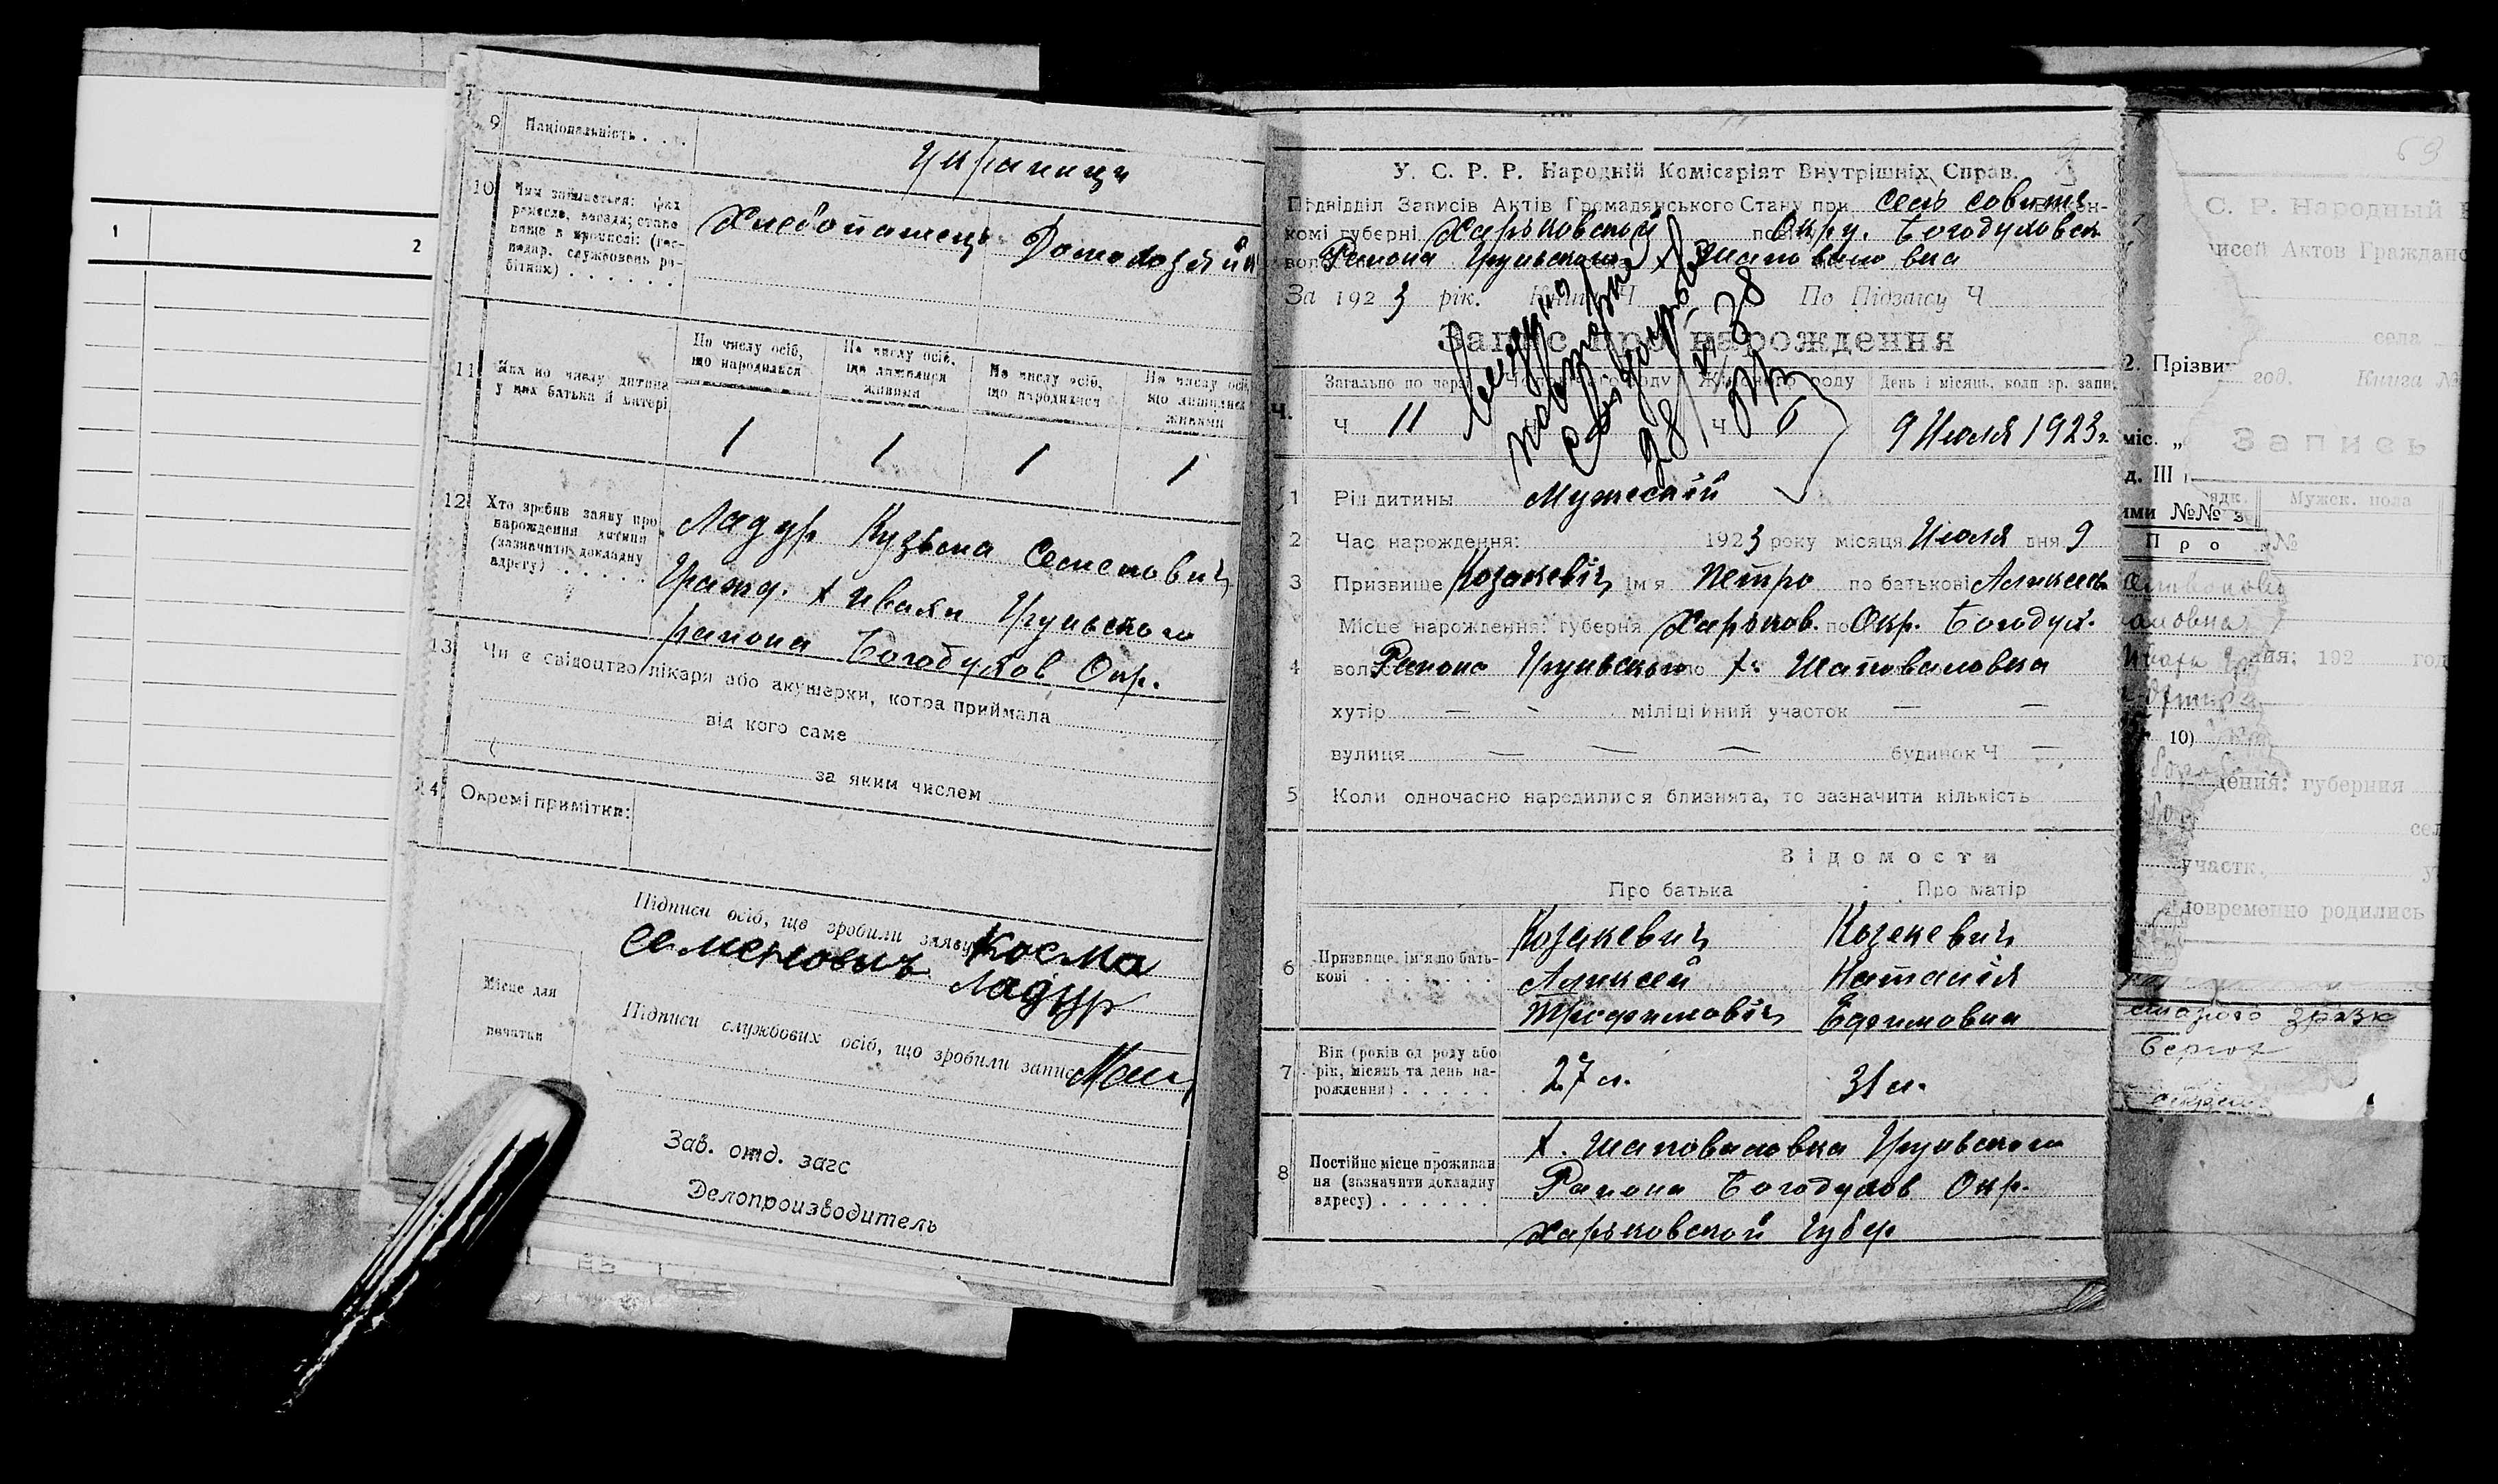 1
2
9 Національність . . .
Украинци
10 Чим займається: фах
ремесло, посада; стано
вище в промислі: (гос-
подар, службовець ро-
бітник) . . . . . .
Хлебопашець Домохозяйк
11 Яка по числу дитина
у цих батька й матері
По числу осіб,
що народилися
По числу осіб,
що лишилися
живими
По числу осіб,
що народилися
По числу осіб
що лишилися
живими
1 1 1 1
12 Хто зробив заяву про
народження дитини
(зазначити докладну
адресу) . . . . .
Ладур Кузьма Семенович
Гражд. х Ивани Грунського
района Богодухов Окр.
13 Чи є свідоцтво лікаря або акушерки, котра приймала
від кого саме
за яким числом
14 Окремі примітки:
Підписи осіб, що зробили заяву
Косма
Семеновичь
Ладур
Місце для
печатки
Підписи службових осіб, що зробили запис
Зав. отд. загс
Делопроизводитель
У. С. Р. Р. Народній Комісаріят Внутрішніх Справ.
Підвідділ Записів Актів Громадянського Стану при
комі губерні Харьковской Окру. Богодуховск
Района Грунського х Шаповаловка
За 1923 рік. Книга Ч По Підзапису Ч
Запис про нарождення
28
Загально по черзі Жіночого роду День і місяць, коли зр. запи
Ч 11 Ч 6 9 Июля 1923 г.
1 Рід дитини Мужеский
2 Час нарождення: 1923 року місяця Июля дня 9
3 Призвище Козакевіч ім'я Петро по батькові Алексеев
Місце нарождення: губерня Харьков. Окр. Богодух.
4 Района Грунського х. Шаповаловка
хутір — міліційний участок — —
вулиця — — — будинок Ч —
5 Коли одночасно народилися близнята, то зазначити кількість
Відомости
Про батька Про матір
6 Призвище, ім'я по бать-
кові . . . . . . .
Козакевич Козакевич
Алексей Наталія
Трофимовіч Ефимовна
7 Вік (років од роду або
рік, місяць та день на-
рождення) . . . . .
27 л. 31 л.
8 Постійне місце проживан
ня (зазначити докладну
адресу) . . . . . .
х. Шаповаловка Грунського
Района Богодухов Окр.
Харьковской Губер
69
С. Р. Народный
писей Актов Гражданс
села
2. Прізви
год. Книга №
міс. „
Запись
д. III
Мужск. пола
ими №№ з
П р о
№
дня; 192 год
10)
дения: губерния
участк.
довременно родились